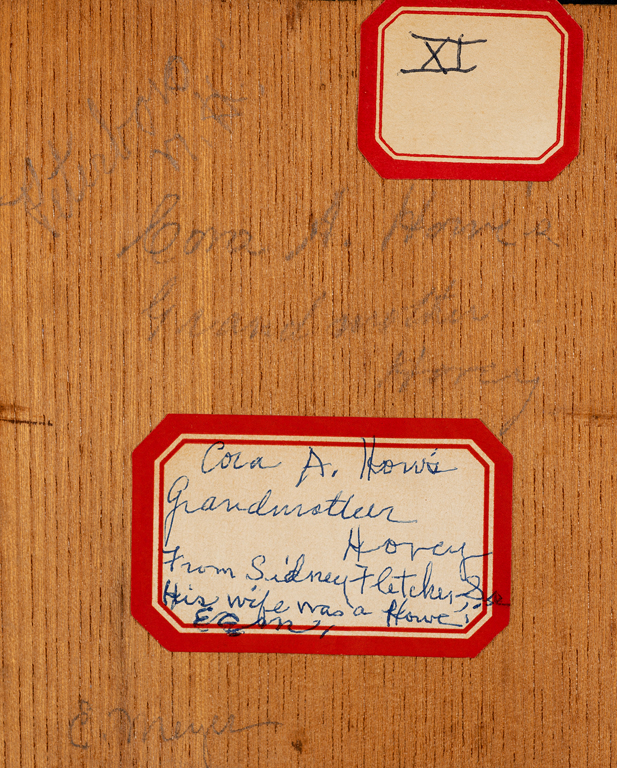 XI
Cora A. Howe's
Grandmother
Hovey
Cora A. How's
Grandmother
Hovey
From Sidney Fletcher
His wife was a Howe
E. Meyer